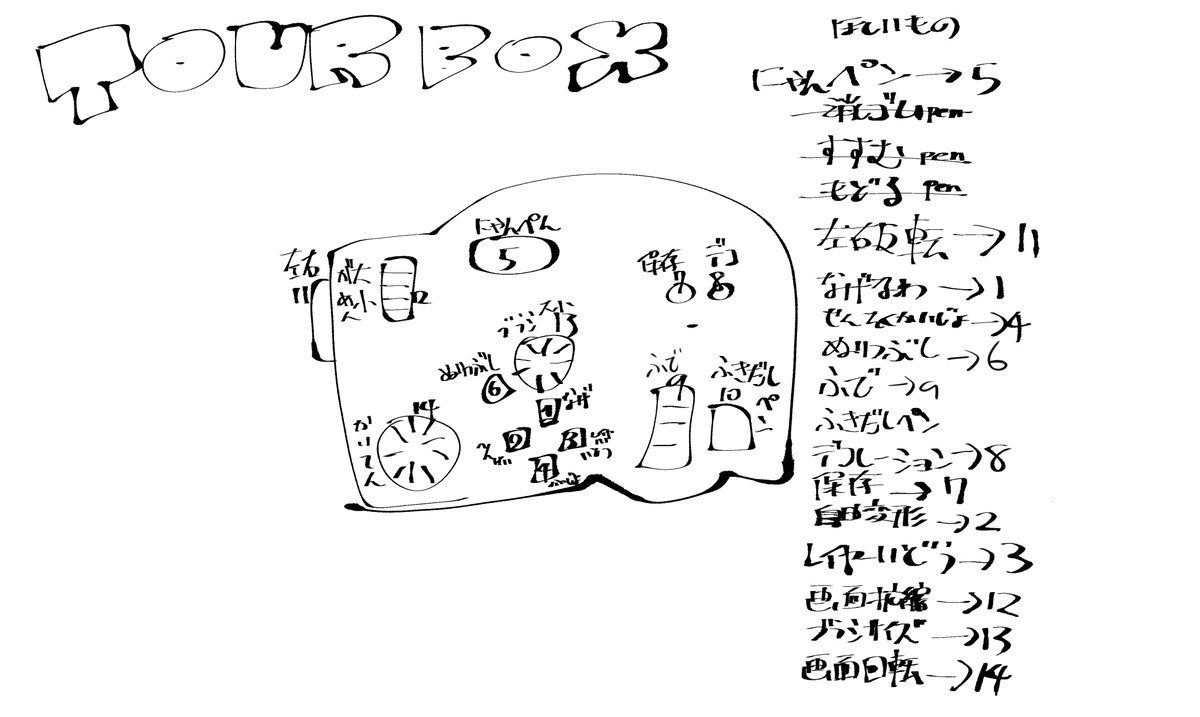 TOURBOX
ほしいもの
にゃんペン→5
消しゴムpen
すすむ pen
もどる pen
左右反転→11
なげなわ→1
せんたくかいじょ→4
ぬりつぶし→6
ふで→9
ふきだしペン
デコレーション→8
保存→7
自由変形→2
レイヤーいどう→3
画面拡縮→12
ブラシサイズ→13
画面回転→14
にゃんぺん
5
左右
11
がめん
大小
12
保存
7
デコ
8
ブラシ
大小
13
ぬりつぶし
6
ふで
9
ふきだし
ペン
10
1
なげ
2
3
4
かいてん
14